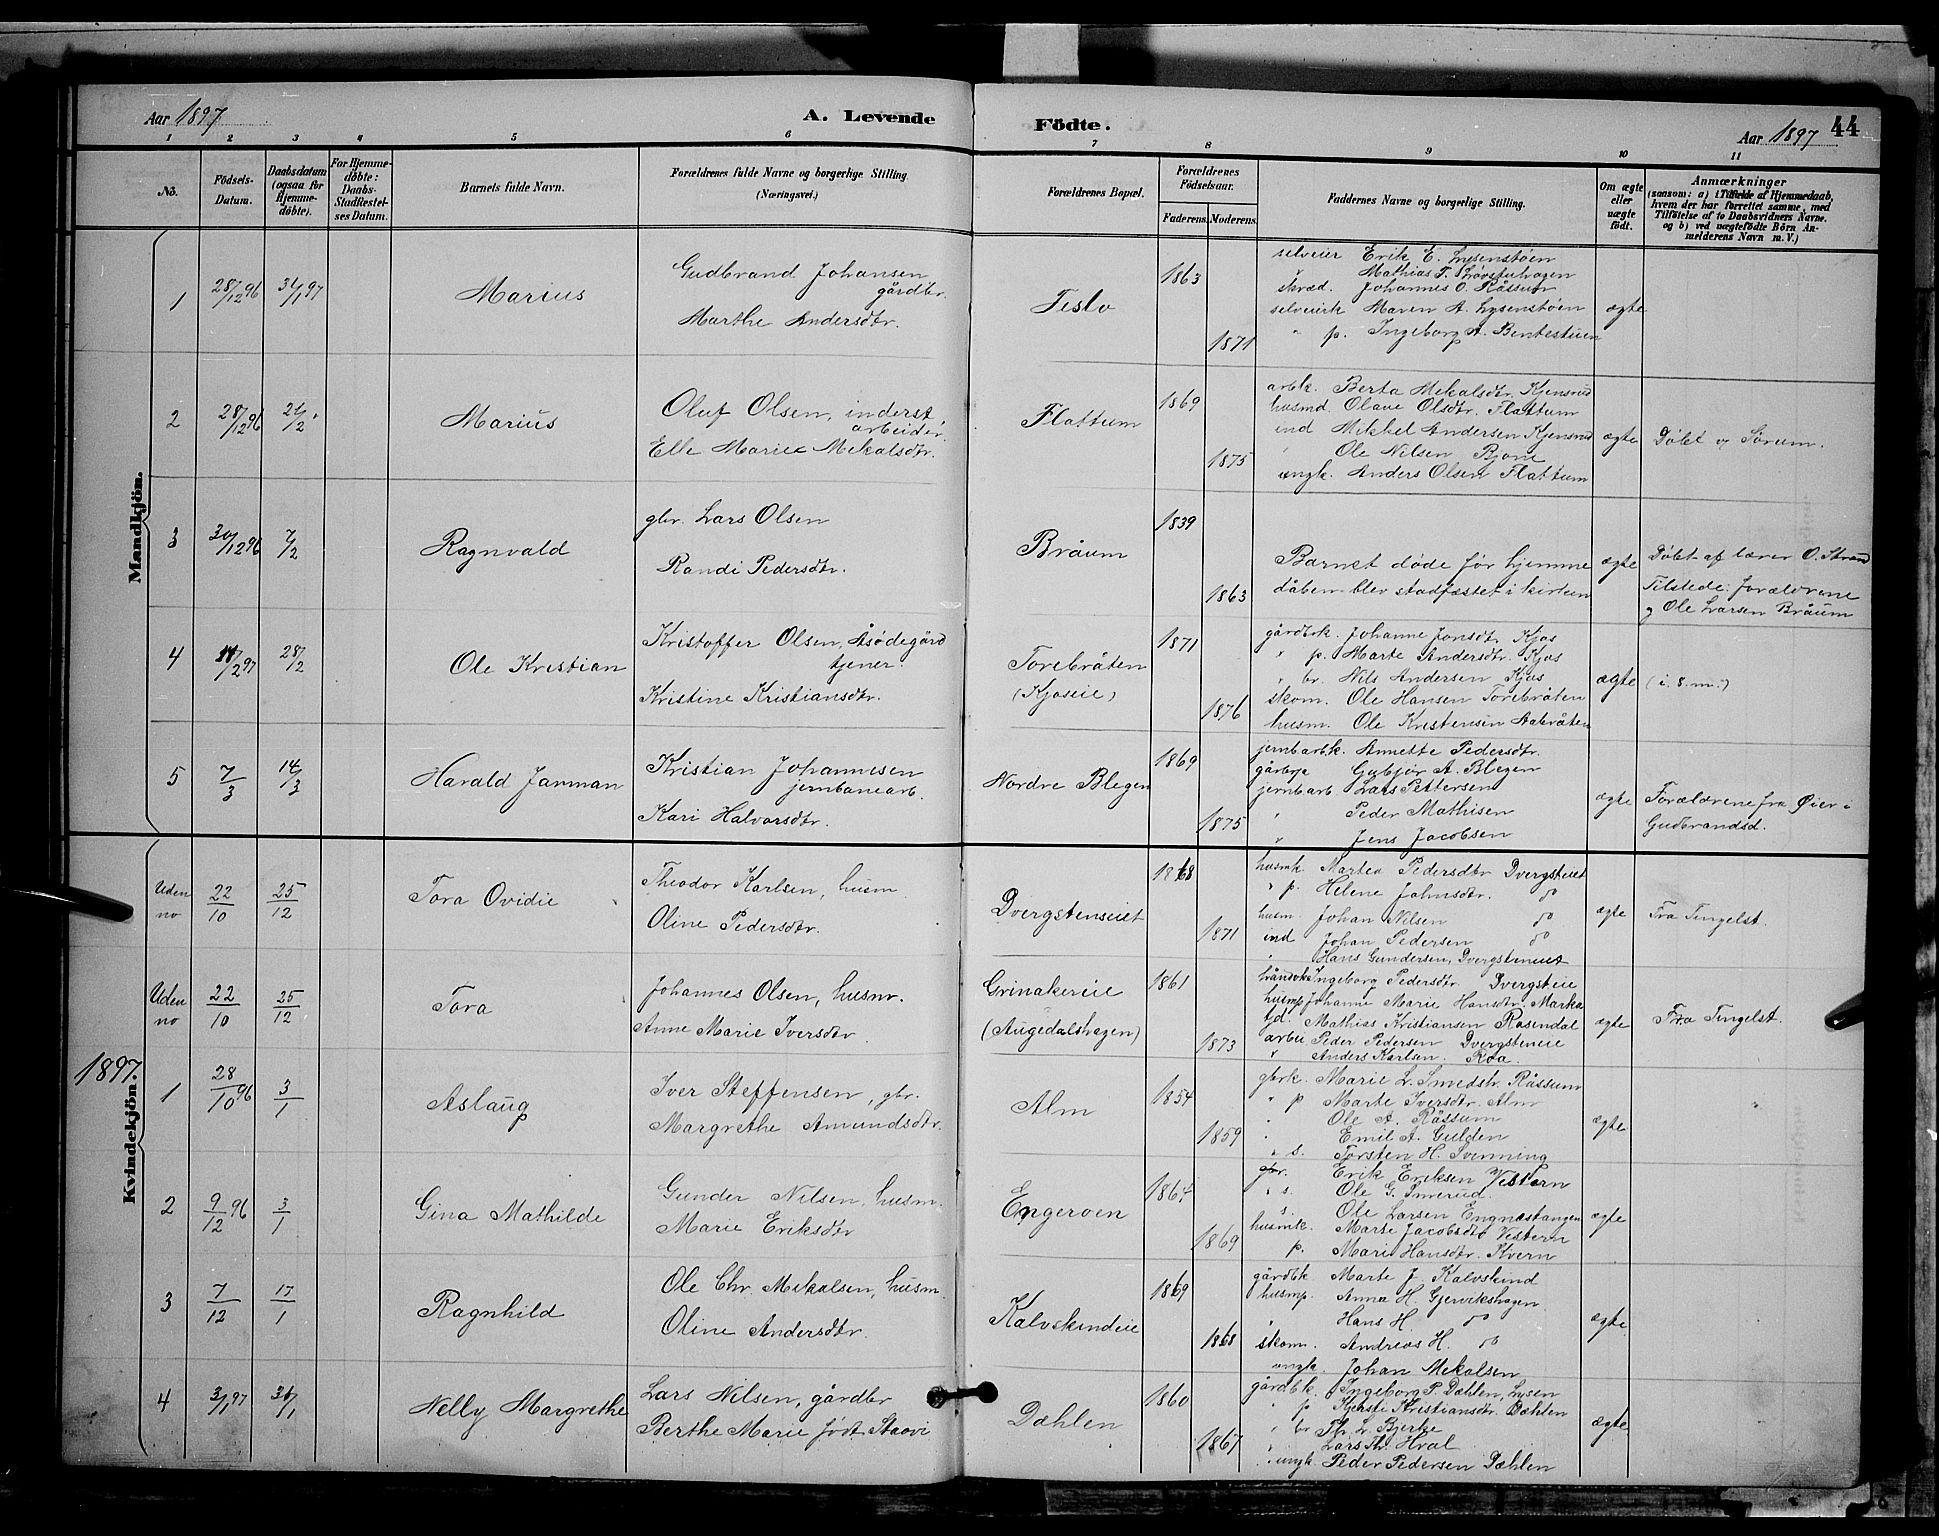 Aar 1897 A. Levende Födte. Aar 1897 44
1 2 3 4 5 6 7 8 9 10 11
No. Födsels-Datum. Daabsdatum (ogsaa for Hjemmedöbte). For Hjemmedöbte: Daabs-Stadfæstelses Datum. Barnets fulde Navn. Forældrenes fulde Navne og borgerlige Stilling. (Næringsvei.) Forældrenes Bopæl. Forældrenes Födselsaar. Faderens. Moderens. Faddernes Navne og borgerlige Stilling. Om ægte eller uægte födt. Anmærkninger (saasom: a) i Tilfælde af Hjemmedaab, hvem der har forrettet samme, med Tilföielse af to Daabsvidners Navne. og b) ved uægtefödte Börn Anmelderens Navn m. V.)
Mandkjön.
1 28/12 96 31/1 97 Marius
Gudbrand Johansen gårdbr.
Marthe Andersdtr.
Teslo 1863 1871
selveier Erik E. Lysenstøen
Mathias T. Løvstuhagen
skræd. Johannes O. Råssum
selveierk Maren A. Lysenstøen
" p. Ingeborg A. Bentestuen
ægte
2 28/12 96 21/2 Marius
Oluf Olsen, inderst, arbeider.
Elle Marie Mekalsdtr.
Flattum 1869 1875
arbk. Berta Mekalsdtr. Kjensrud
husmd. Olave Olsdtr. Flattum
ind Mikkel Andersen Kjensrud
Ole Nilsen Bjone
ungk. Anders Olsen Flattum
ægte Døbt i Sørum.
3 30/12 96 7/2 Ragnvald
gbr. Lars Olsen
Randi Pedersdtr.
Bråum 1839 1863
Barnet døde før hjemme
dåben blev stadfæstet i kirken
ægte
Døbt af lærer O. Strand
Tilstede: forældrene
og Ole Larsen Bråum
4 /2 97 28/2 Ole Kristian
Kristoffer Olsen, Åsødegård tjener.
Kristine Kristiansdtr.
Torebråten (Kjoseie) 1871 1876
gårdbrk. Johanne Jonsdtr Kjos
" p. Marte Andersdtr. Kjos
" br. Nils Andersen Kjos
skom. Ole Hansen Torebråten
husm. Ole Kristensen Aabråten
ægte (i. s. m.)
5 7/3 14/3 Harald Janman
Kristian Johannesen jernbanearb.
Kari Halvorsdtr.
Nordre Blegen 1869 1875
jernbarbk. Annette Pedersdtr.
gårbrp Gubjør A. Blegen
jernbarb Lars Pettersen
" Peder Mathisen
" Jens Jacobsen
ægte
Forældrene fra Øier i
Gudbrandsd.
Uden no 22/10 25/12 Tora Ovidie
Theodor Karlsen, husm
Oline Pedersdtr.
Dvergsteneiet 1868 1871
husmk. Martea Pedersdtr Dvergsteiet
" p. Helene Johnsdtr. do
husm. Johan Nilsen do
ind Johan Pedersen do
" Hans Gundersen, Dvergsteneiet
ægte Fra Tingelst.
Uden no 22/10 25/12 Tora
Johannes Olsen, husmr.
Anne Marie Iversdtr.
Grinakereie (Augedalshagen) 1861 1873
håndvks Ingeborg Pedersdtr Dvergsteie
husmp Johanne Marie Hansdtr. Marka
tjd. Mathias Kristiansen Rosendal
arbei Peder Pedersen Dvergsteneie
" Anders Karlsen. Roa.
ægte Fra Tingelst.
1897.
Kvindekjön.
1 28/10 96 3/1 Aslaug
Iver Steffensen, gbr.
Margrethe Amundsdtr.
Alm 1854 1859
gbrk. Marie L. Smedstr. Råssum
" p Marte Iversdtr. Alm
" Ole A. Råssum
" Emil A. Gulden
" s. Torsten H. Svenning
ægte
2 9/12 96 3/1 Gina Mathilde
Gunder Nilsen, husm.
Marie Eriksdtr
Engeroen 1864 1869
gbr. Erik Eriksen Vestern
" s. Ole G. Smerud.
s. Ole Larsen Engnæstangen
husmk. Marte Jacobsdtr Vestern
p. Mari Hansdtr. Kvern
ægte
3 7/12 17/1 Ragnhild
Ole Chr. Mekalsen, husm.
Oline Andersdtr.
Kalvskindeie 1869 1868
gårdbk Marte J. Kalvskind
husmp. Anna H. Gjervikshagen.
" Hans H. do
skom. Andreas H. do
ungk Johan Mekalsen
ægte
4 3/1 97 31/1 Nelly Margrethe
Lars Nilsen, gårdbr
Berthe Marie født Staavi
Dæhlen 1860 1867
gårdbk. Ingeborg P. Dæhlen, Lysen
" p Kjersti Kristiansdtr. Dæhlen
" br Th. L. Bjerke
" Lars Th. Hval
" ungk Peder Pedersen Dæhlen
ægte